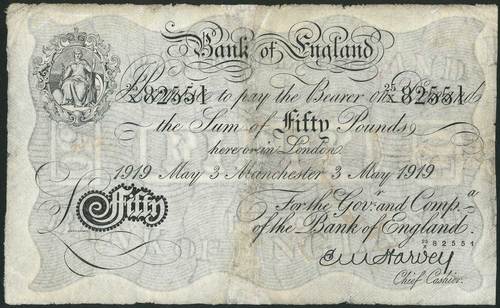 Bank of England
25/X 82551 25/X 82551
I Promise to pay the Bearer on Demand
the Sum of Fifty Pounds
here or in London
1919 May 3 Manchester 3 May 1919
For the Govr. and Compa.
of the Bank of England.
£ Fifty
25/X 82551
E.M. Harvey
Chief Cashier.